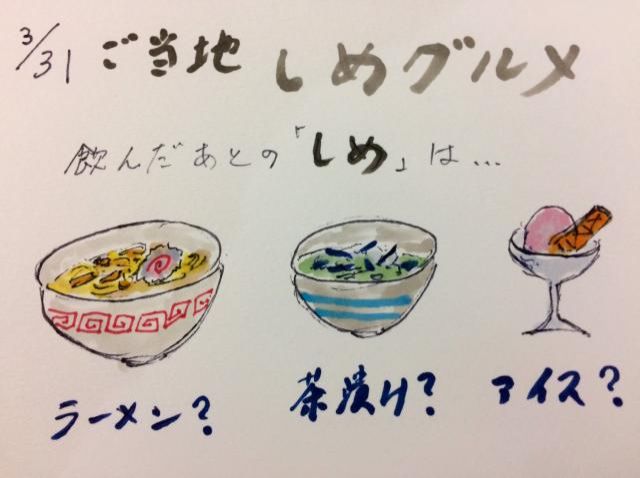 3/31 ご当地 しめグルメ
飲んだあとの「しめ」は...
ラーメン? 茶漬け? アイス?